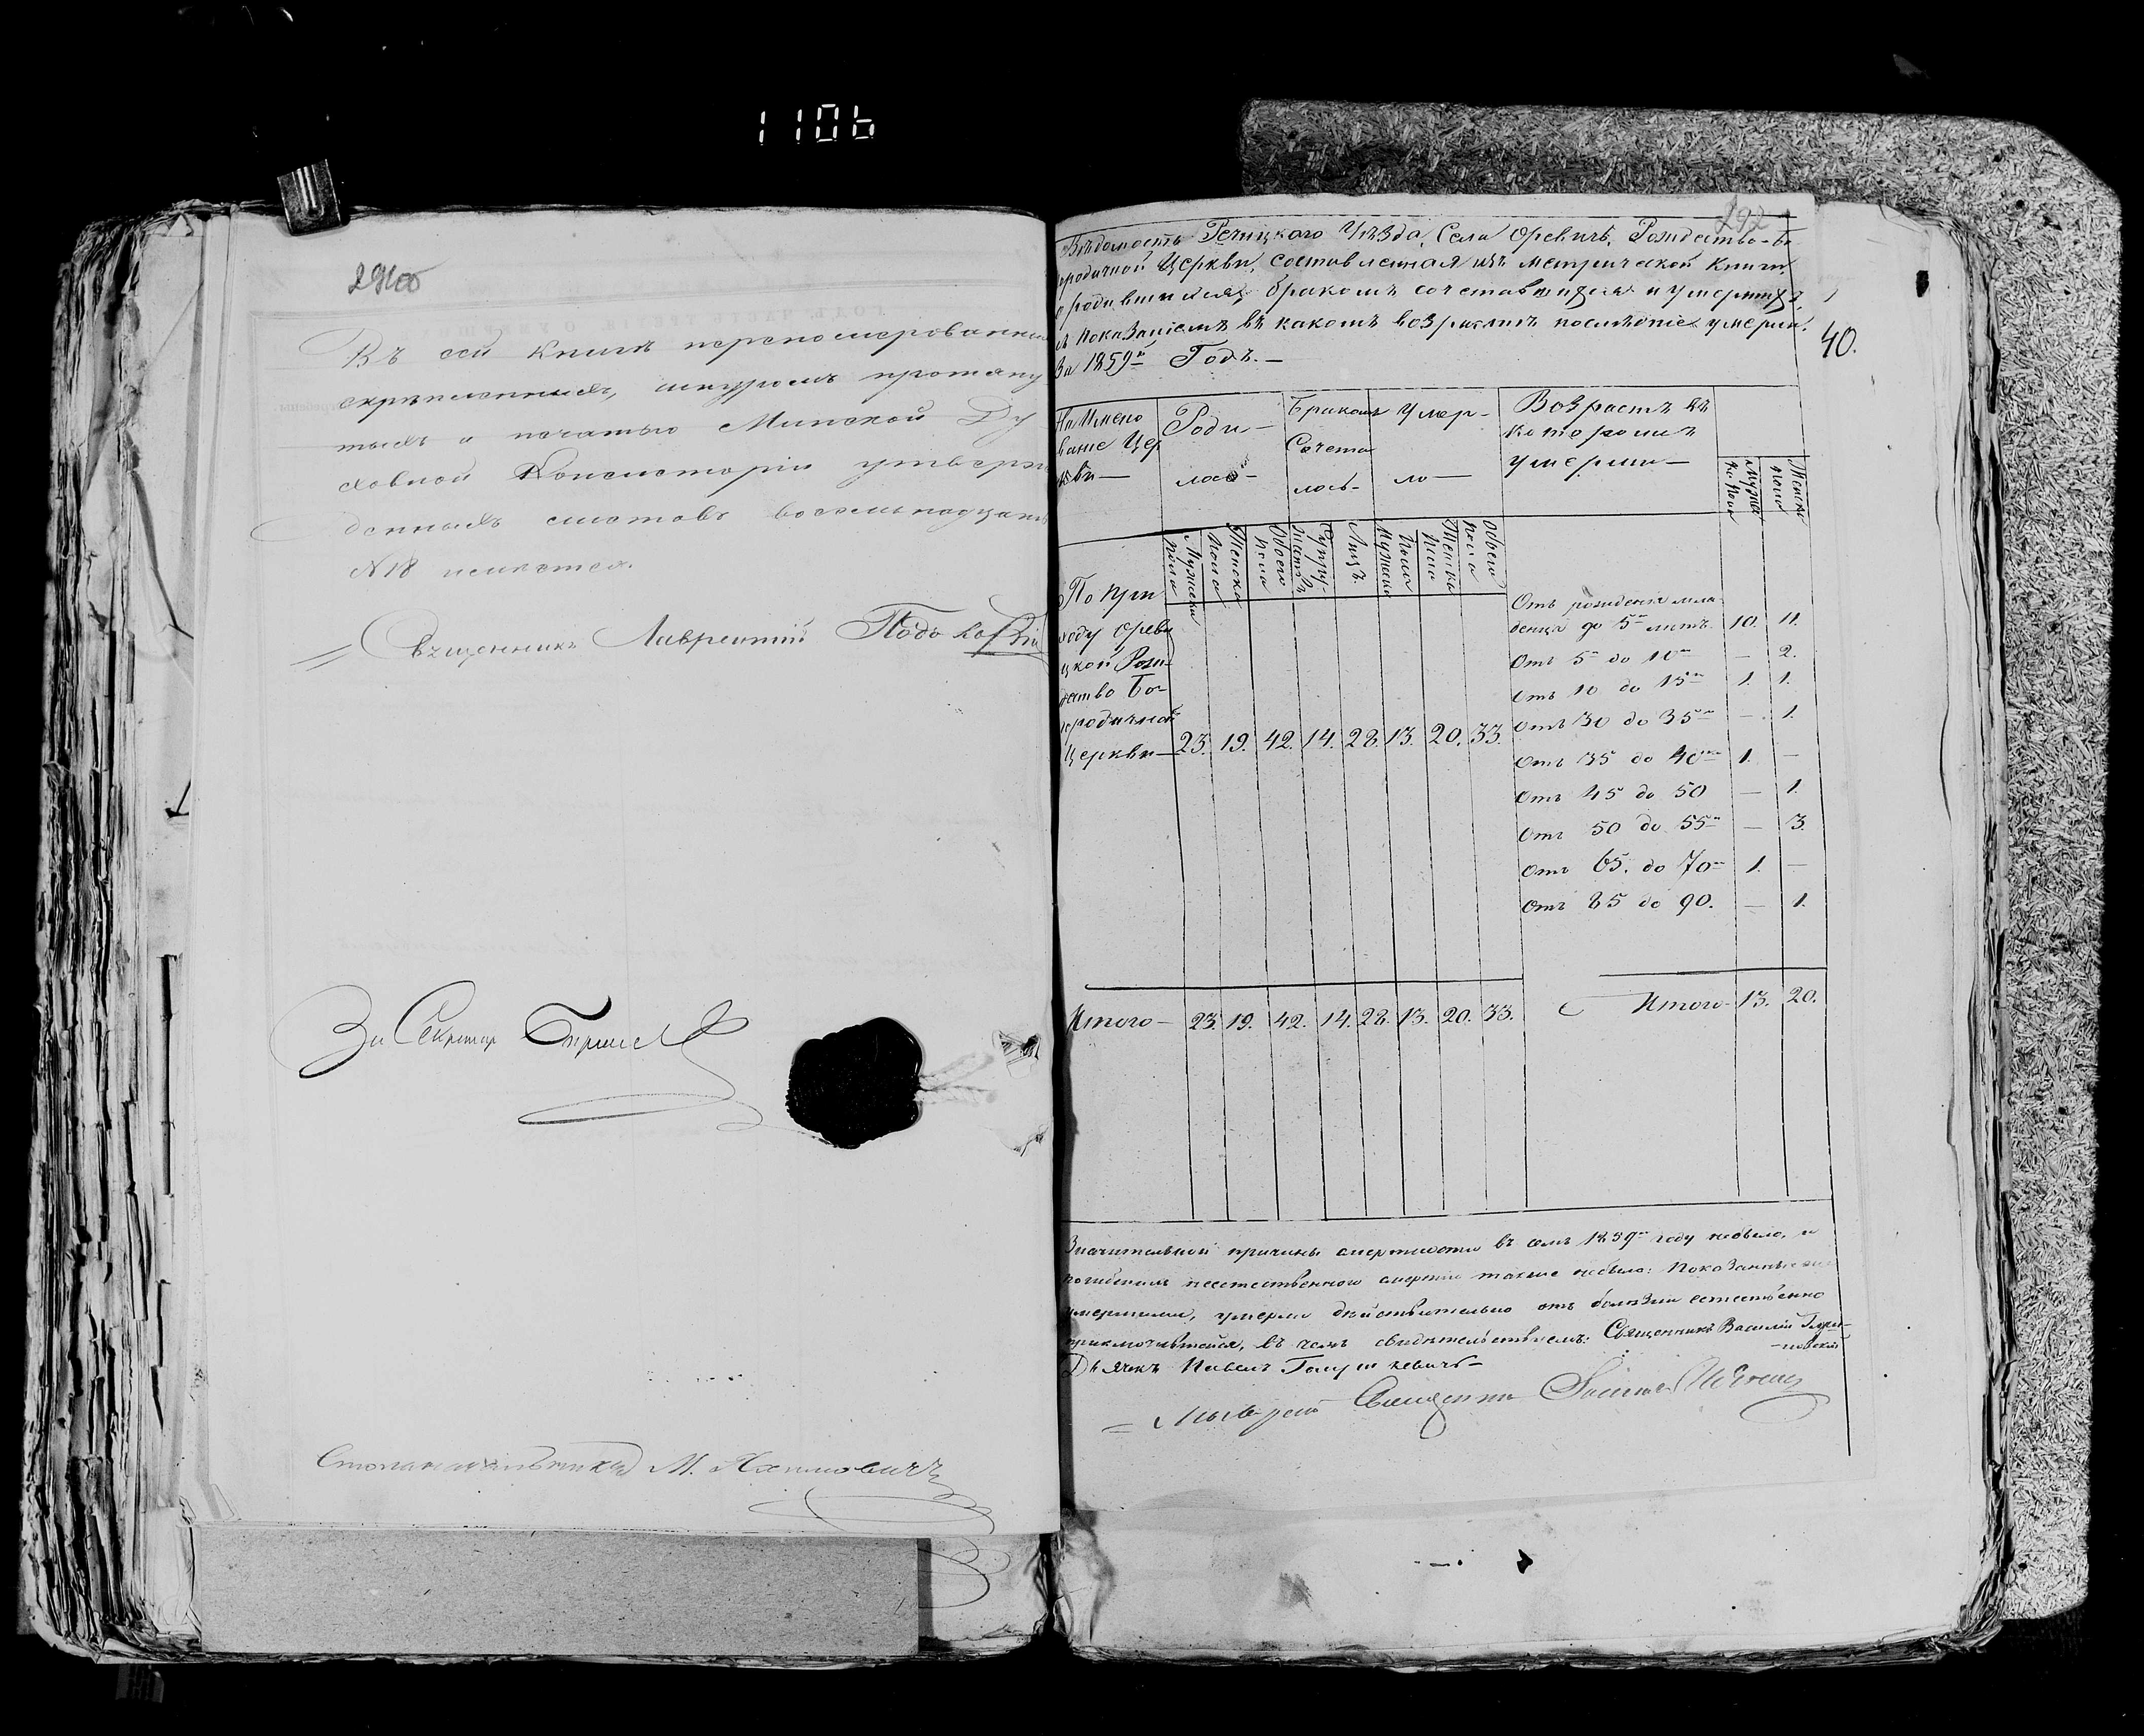 1106
Въ сей Книгѣ перенумерованныхъ
скрѣпленныхъ, шнуромъ протяну
тыхъ и печатью Минской Ду
ховной Консисторіи утверж
денныхъ листовъ восемьнадцать
№ 18 имѣется.
Священникъ Лаврентій
За Секретаря
Столоначальника М.
292
Вѣдомость Рѣчицкаго Уѣзда, Села Оревичь, Рождество-Бо
городичной Церкви, составленная изъ метрической книги,
о родившихся, бракомъ сочетавшихся и умершихъ
съ показаніемъ въ какомъ возрастѣ послѣдніе умерли.
За 1859й Годъ.—
40.
На Имено
ваніе Цер
кви—
Роди—
лось—
Бракомъ
Сочета
лось—
Умер—
ло—
Возрастъ въ
которомъ
умерли—
Мужска го Пола
Женска пола
Мужска пола
Женска пола
Обоего пола
Супру жествъ
Лицъ.
Мужска пола
Женска пола
Обоего пола
По При
ходу Ореви
цкой Рож
дество Бо
городичной
Церкви— 23. 19. 42. 14. 28. 13. 20. 33.
Отъ рожденія мла
денца до 5 лѣтъ. 10. 11.
Отъ 5 до 10 — 2.
Отъ 10 до 15 1. 1.
Отъ 30 до 35 — 1.
Отъ 35 до 40 1. —
Отъ 45 до 50 — 1.
Отъ 50 до 55 — 3.
Отъ 65. до 70 1. —
Отъ 85 до 90. — 1.
Итого— 23. 19. 42. 14. 28. 13. 20. 33.
Итого— 13. 20.
Значительной причины смертности въ семъ 1859м году небыло, и
погибшихъ неестественною смертію также небыло: Показанные
умершими, умерли дѣйствительно отъ болѣзни естественно
приключившейся, въ чемъ свидѣтельствуемъ: Священникъ Василій
Дьячекъ Павелъ
Священникъ